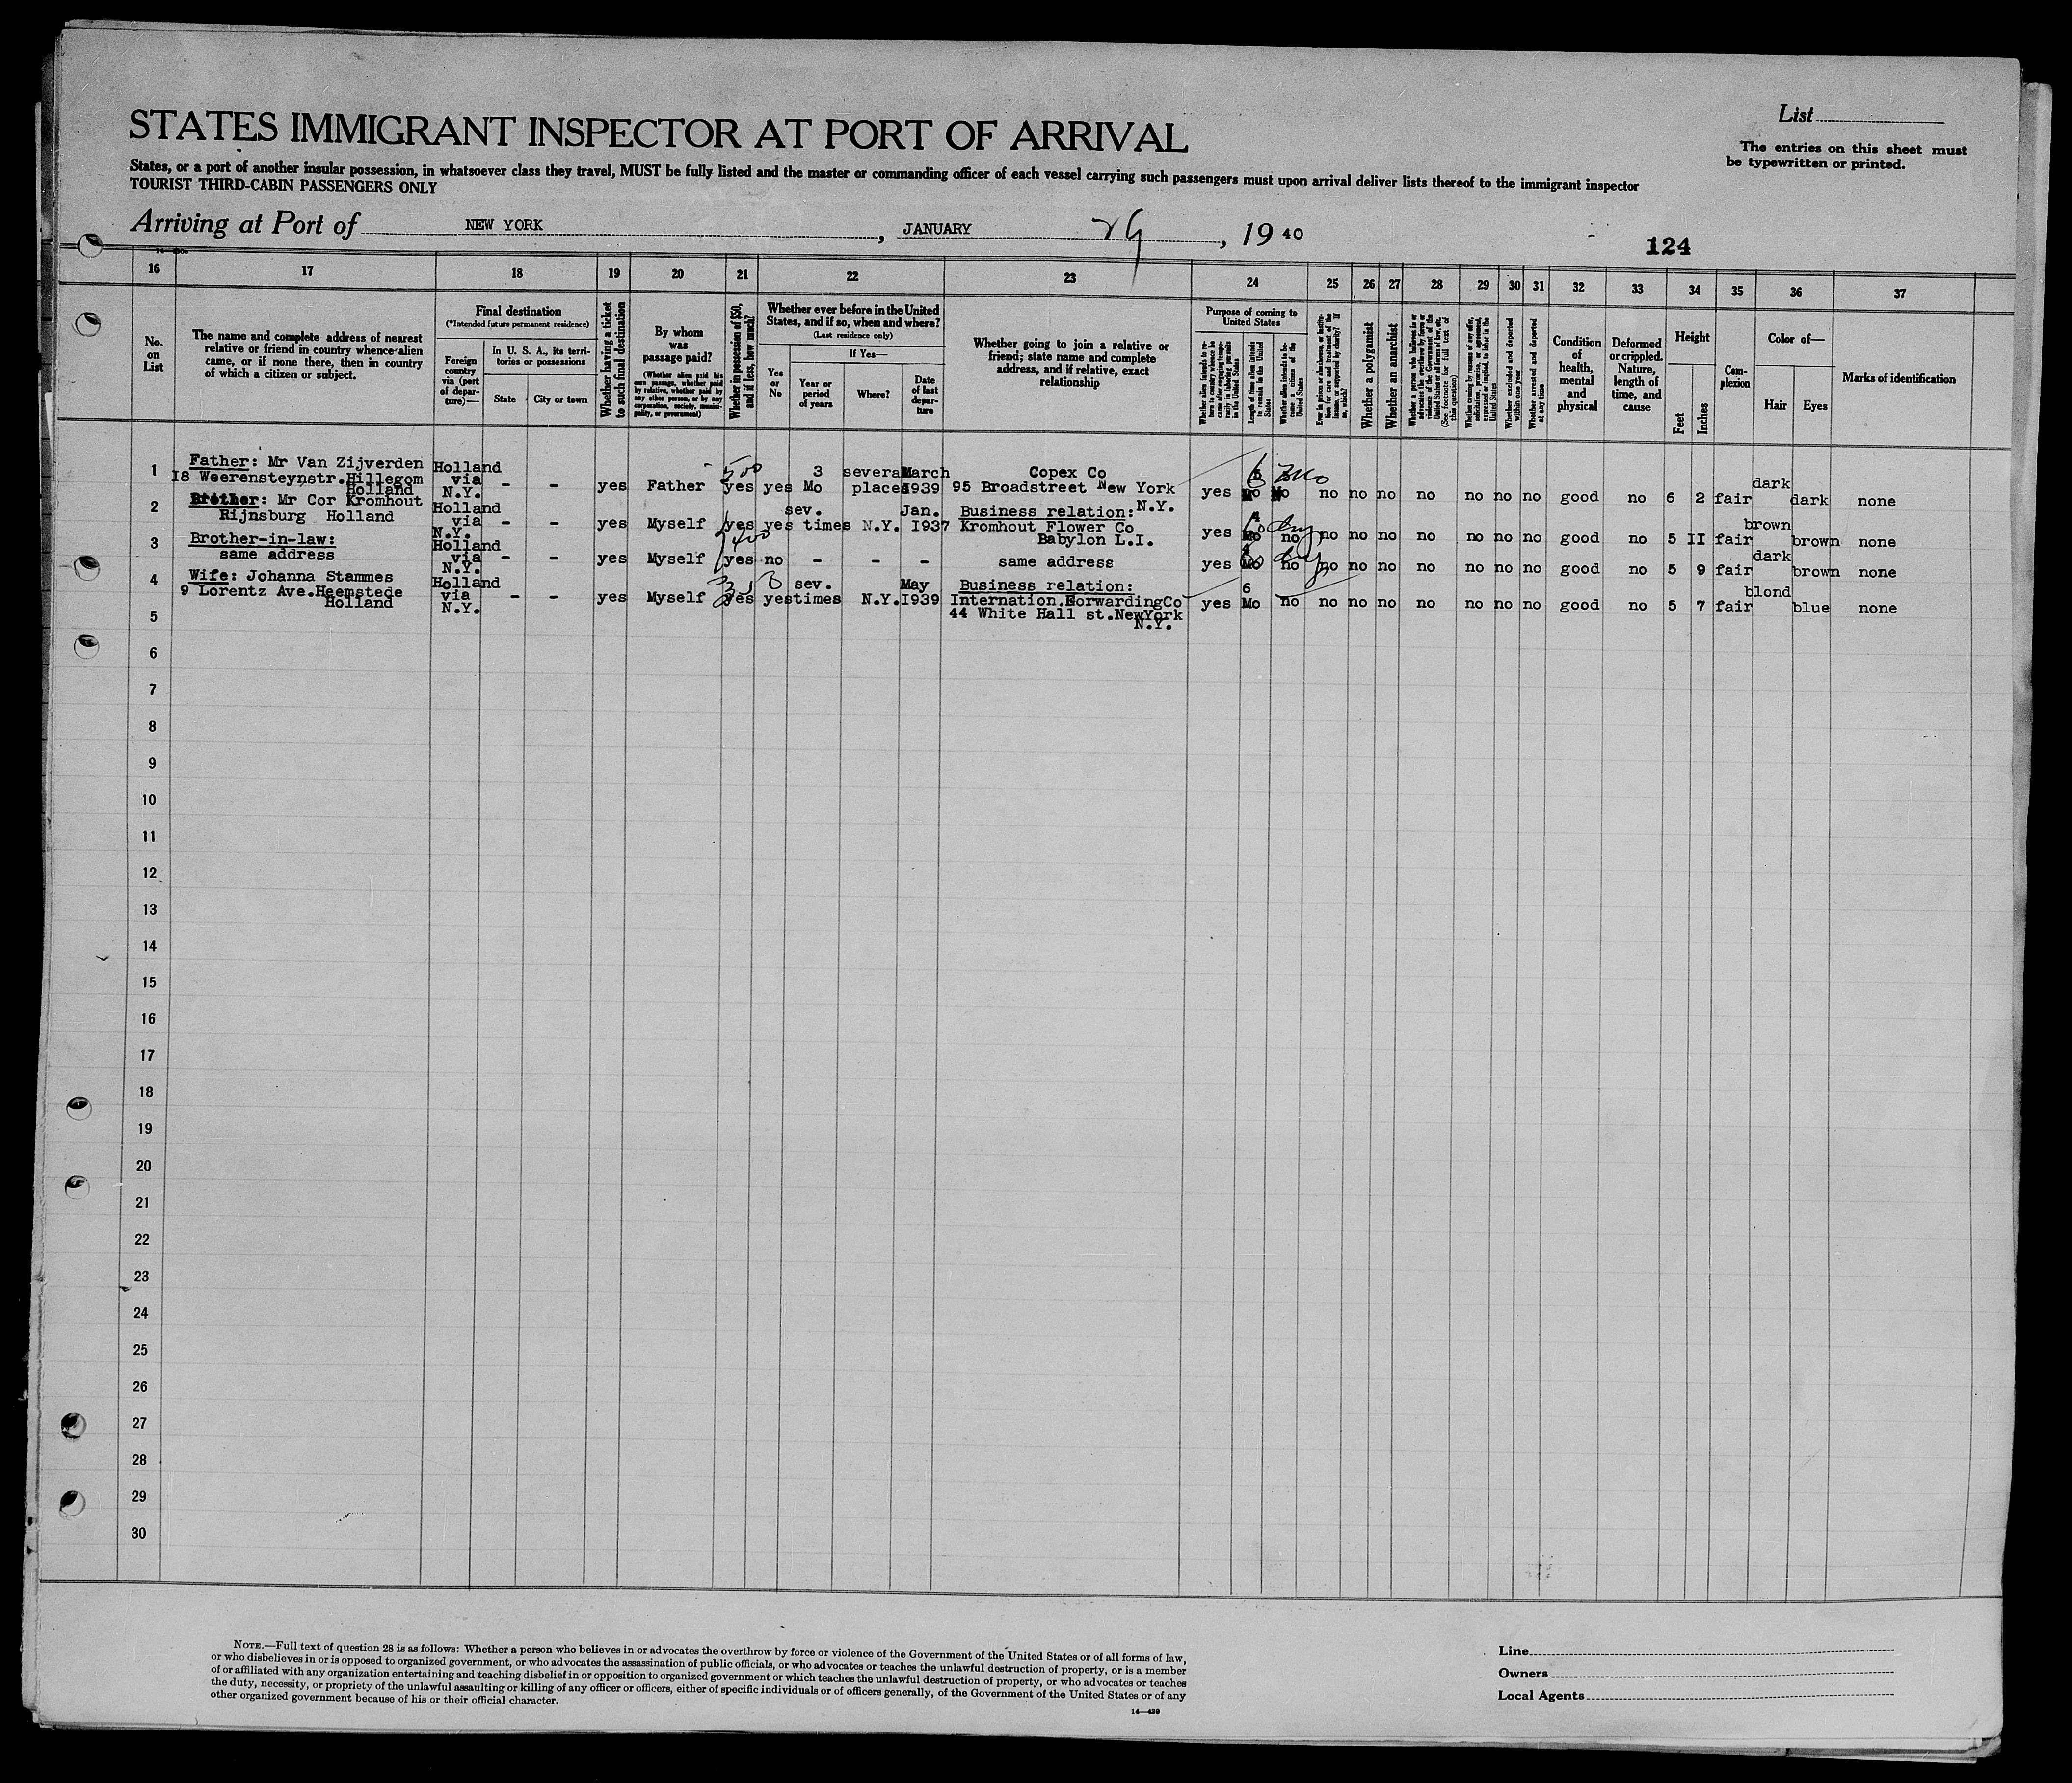 STATES IMMIGRANT INSPECTOR AT PORT OF ARRIVAL
List
The entries on this sheet must
be typewritten or printed.
States, or a port of another insular possession, in whatsoever class they travel, MUST be fully listed and the master or commanding officer of each vessel carrying such passengers must upon arrival deliver lists thereof to the immigrant inspector
TOURIST THIRD-CABIN PASSENGERS ONLY
Arriving at Port of NEW YORK, JANUARY 29, 19 40
124
16 17 18 19 20 21 22 23 24 25 26 27 28 29 30 31 32 33 34 35 36 37
No.
on
List
The name and complete address of nearest
relative or friend in country whence alien
came, or if none there, then in country
of which a citizen or subject.
Final destination
(*Intended future permanent residence)
Foreign
country
via (port
of depar-
ture)—
In U. S. A., its terri-
tories or possessions
State
City or town
Whether having a ticket
to such final destination
By whom
was
passage paid?
(Whether alien paid his
own passage, whether paid
by relative, whether paid by
any other person, or by any
corporation, society, munici-
pality, or government)
Whether in possession of $50,
and if less, how much?
Whether ever before in the United
States, and if so, when and where?
(Last residence only)
Yes
or
No
If Yes—
Year or
period
of years
Where?
Date
of last
depar-
ture
Whether going to join a relative or
friend; state name and complete
address, and if relative, exact
relationship
Purpose of coming to
United States
Length of time alien intends
to remain in the United
States
Whether alien intends to be-
come a citizen of the
United States
Whether a polygamist
Whether an anarchist
(See footnote for full text of
this question)
Whether excluded and deported
within one year
Whether arrested and deported
at any time
Condition
of
health,
mental
and
physical
Deformed
or crippled.
Nature,
length of
time, and
cause
Height
Feet
Inches
Com-
plexion
Color of—
Hair
Eyes
Marks of identification
1 Father: Mr Van Zijverden
18 Weerensteynstr.Hillegom
Holland
Holland
via
N.Y.
- - yes Father 500 yes yes 3 Mo several places March 1939
Copex Co
95 Broadstreet New York
N.Y.
yes 6 Mo no no no no no no no good no 6 2 fair dark dark none
2 Brother: Mr Cor Kromhout
Rijnsburg Holland
Holland
via
N.Y.
- - yes Myself yes yes sev. times N.Y. Jan. I937
Business relation:
Kromhout Flower Co
Babylon L.I.
yes Mo no no no no no no no no good no 5 II fair brown brown none
3 Brother-in-law:
same address
Holland
via
N.Y.
- - yes Myself yes no - - -
same address
yes Mo no no no no no no no no good no 5 9 fair dark brown none
4 Wife: Johanna Stammes
9 Lorentz Ave.Heemstede
Holland
Holland
via
N.Y.
- - yes Myself yes yes sev. times N.Y. May 1939
Business relation:
Internation.ForwardingCo
44 White Hall st.NewYork
N.Y.
yes 6 Mo no no no no no no no no good no 5 7 fair blond blue none
5
6
7
8
9
10
11
12
13
14
15
16
17
18
19
20
21
22
23
24
25
26
27
28
29
30
NOTE.—Full text of question 28 is as follows: Whether a person who believes in or advocates the overthrow by force or violence of the Government of the United States or of all forms of law,
or who disbelieves in or is opposed to organized government, or who advocates the assassination of public officials, or who advocates or teaches the unlawful destruction of property, or is a member
of or affiliated with any organization entertaining and teaching disbelief in or opposition to organized government or which teaches the unlawful destruction of property, or who advocates or teaches
the duty, necessity, or propriety of the unlawful assaulting or killing of any officer or officers, either of specific individuals or of officers generally, of the Government of the United States or of any
other organized government because of his or their official character.
14—430
Line
Owners
Local Agents